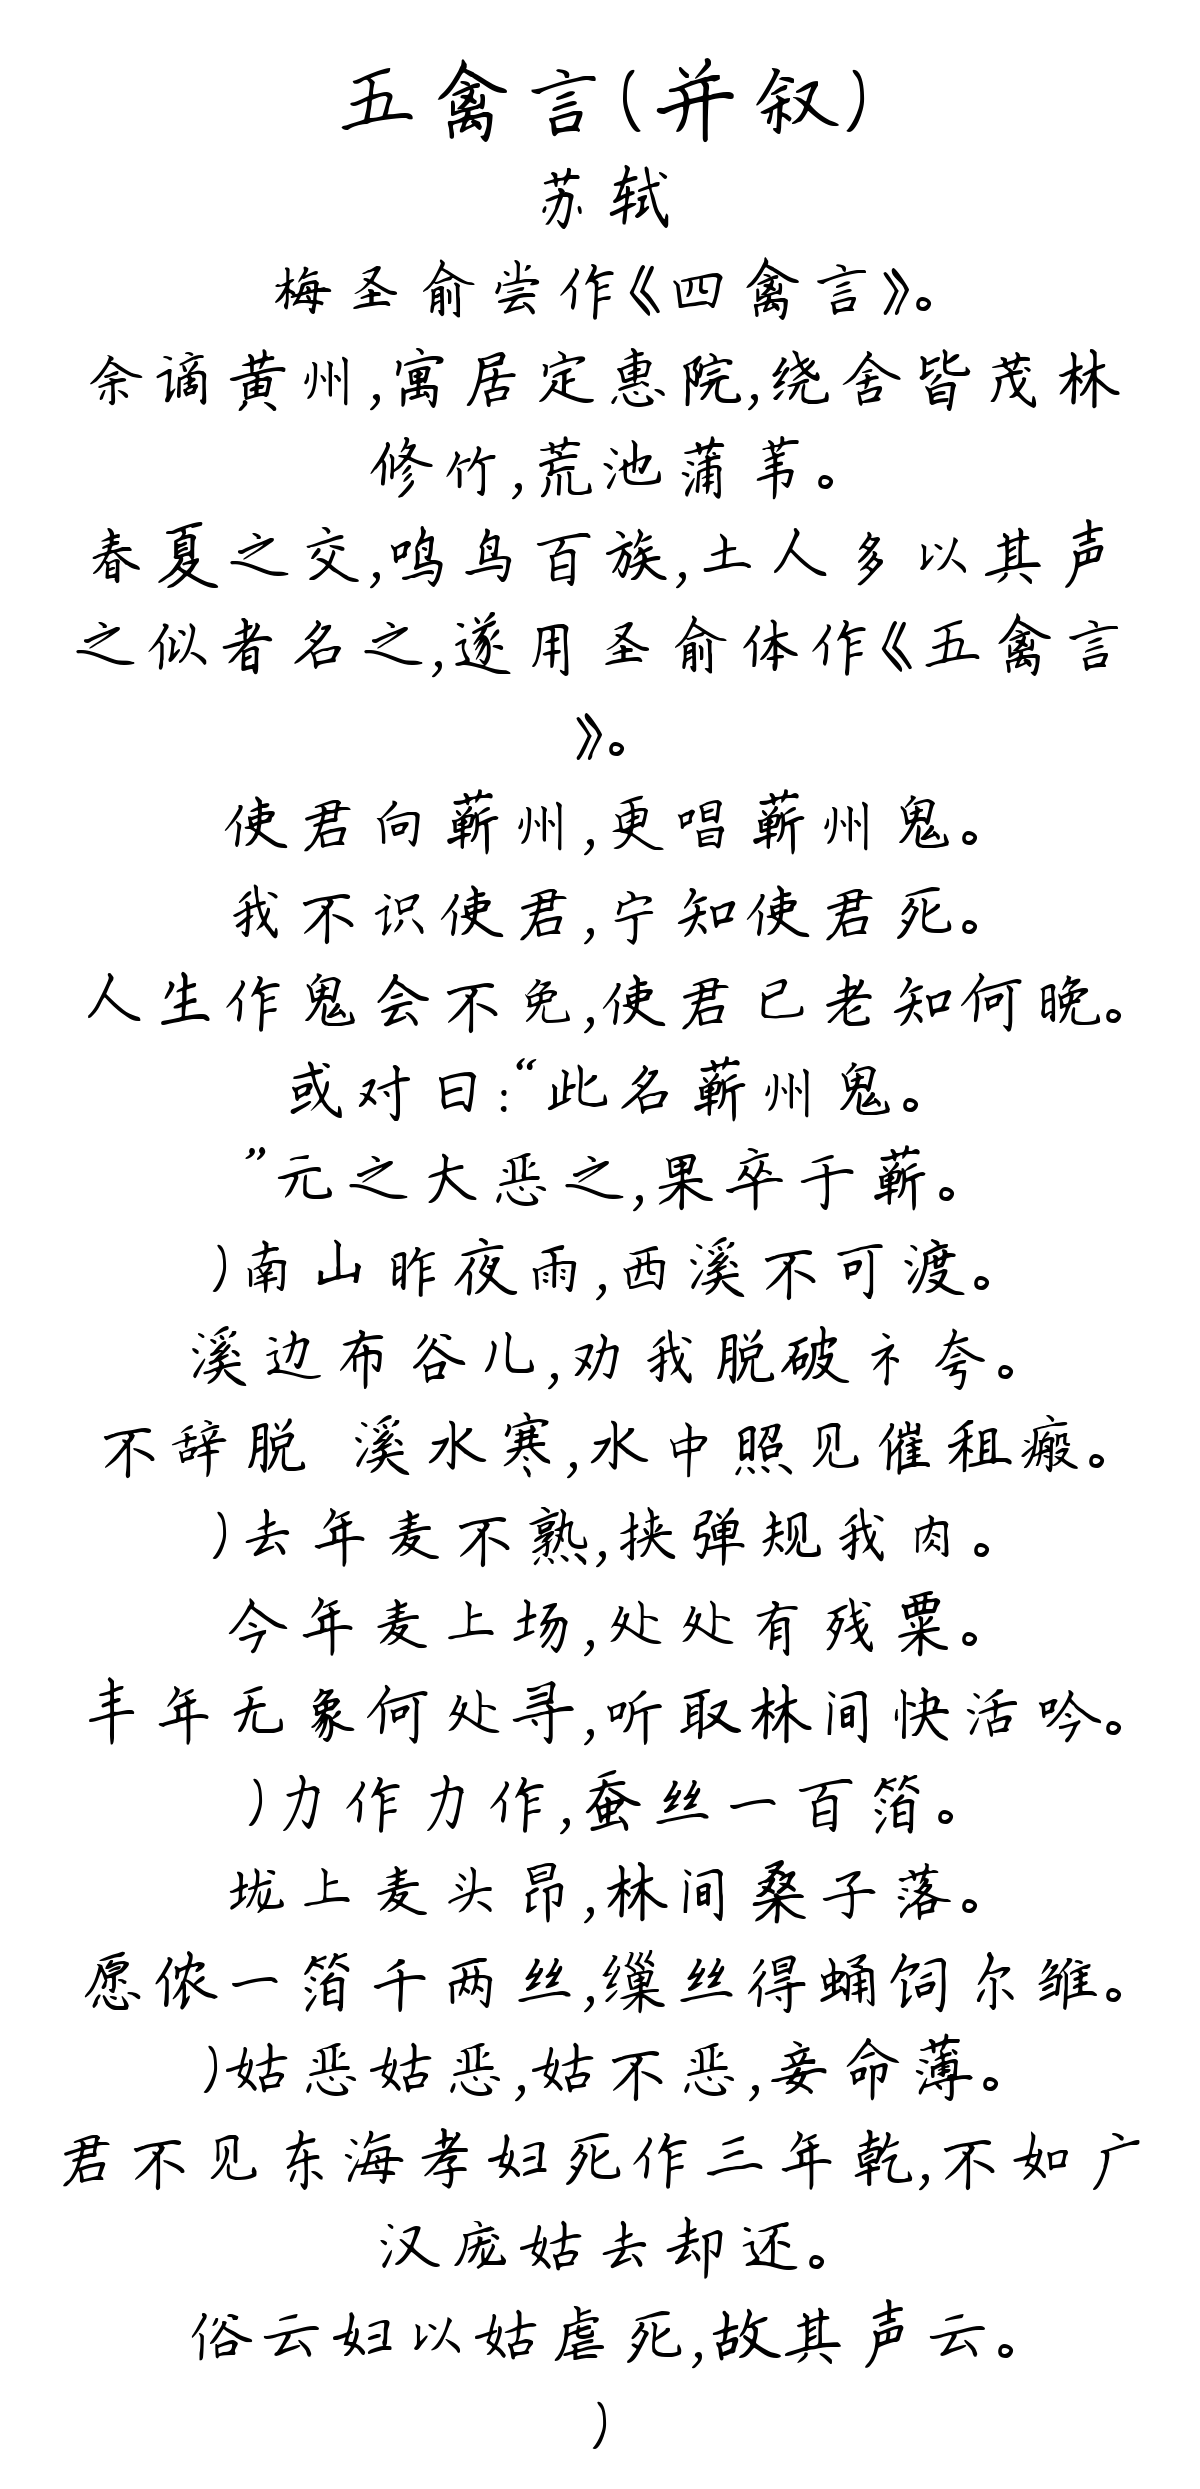 五禽言(并叙)
苏轼
梅圣俞尝作《四禽言》。
余谪黄州,寓居定惠院,绕舍皆茂林
修竹,荒池蒲苇。
春夏之交,鸣鸟百族,土人多以其声
之似者名之,遂用圣俞体作《五禽言
》。
使君向蕲州,更唱蕲州鬼。
我不识使君,宁知使君死。
人生作鬼会不免,使君已老知何晚。
或对曰:“此名蕲州鬼。
”元之大恶之,果卒于蕲。
)南山昨夜雨,西溪不可渡。
溪边布谷儿,劝我脱破衤夸。
不辞脱 溪水寒,水中照见催租瘢。
)去年麦不熟,挟弹规我肉。
今年麦上场,处处有残粟。
丰年无象何处寻,听取林间快活吟。
)力作力作,蚕丝一百箔。
垅上麦头昂,林间桑子落。
愿侬一箔千两丝,缫丝得蛹饲尔雏。
)姑恶姑恶,姑不恶,妾命薄。
君不见东海孝妇死作三年乾,不如广
汉庞姑去却还。
俗云妇以姑虐死,故其声云。
)